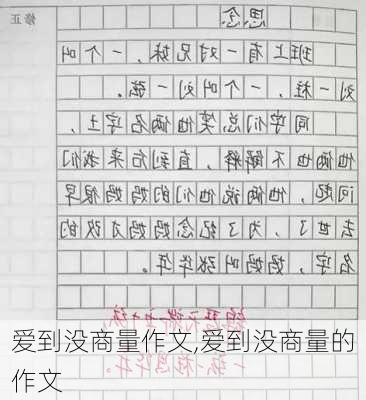 修正
思念
班上有一对兄妹，一个叫
刘一柱，一个叫刘一弦。
同学们总笑他俩名字土，
他俩也不解释，直到后来我们
问起，他俩说他们的妈妈很早
去世了，为了纪念妈妈才改的
名字，妈妈叫张华年。
爱到没商量作文,爱到没商量的
作文